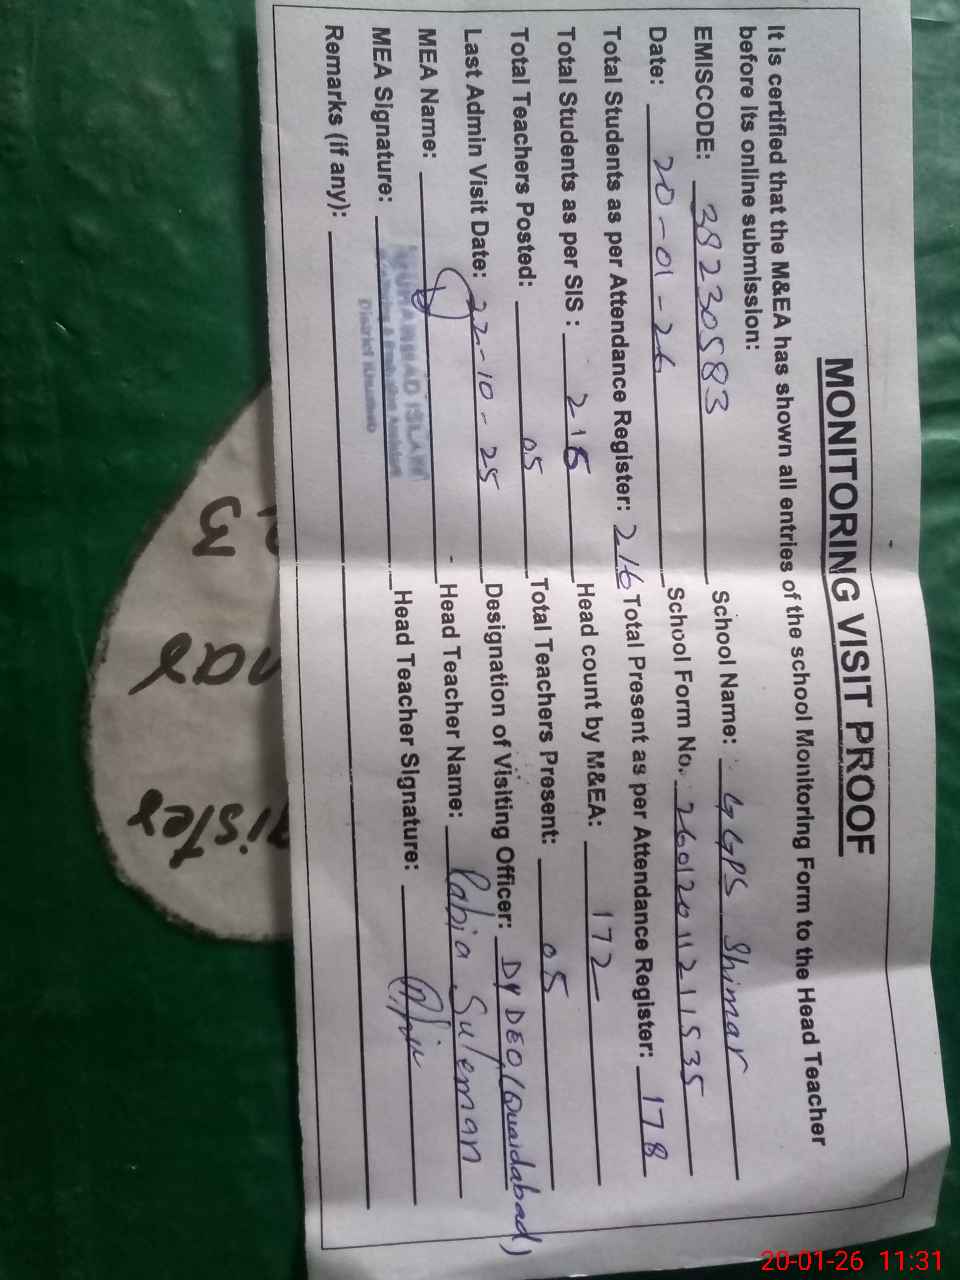 MONITORING VISIT PROOF
It is certified that the M&EA has shown all entries of the school Monitoring Form to the Head Teacher
before its online submission:
EMISCODE: 38230583 School Name: GGPS Shimar
Date: 20-01-26 School Form No. 26012011211535
Total Students as per Attendance Register: 216 Total Present as per Attendance Register: 178
Total Students as per SIS : 216 Head count by M&EA: 172
Total Teachers Posted: 05 Total Teachers Present: 05
Last Admin Visit Date: 22-10-25 Designation of Visiting Officer: DY DEO, (Quaidabad)
MEA Name: MUHAMMAD ISLAM Head Teacher Name: Rabia Suleman
MEA Signature: Head Teacher Signature:
District Khushab
Remarks (if any):
20-01-26 11:31